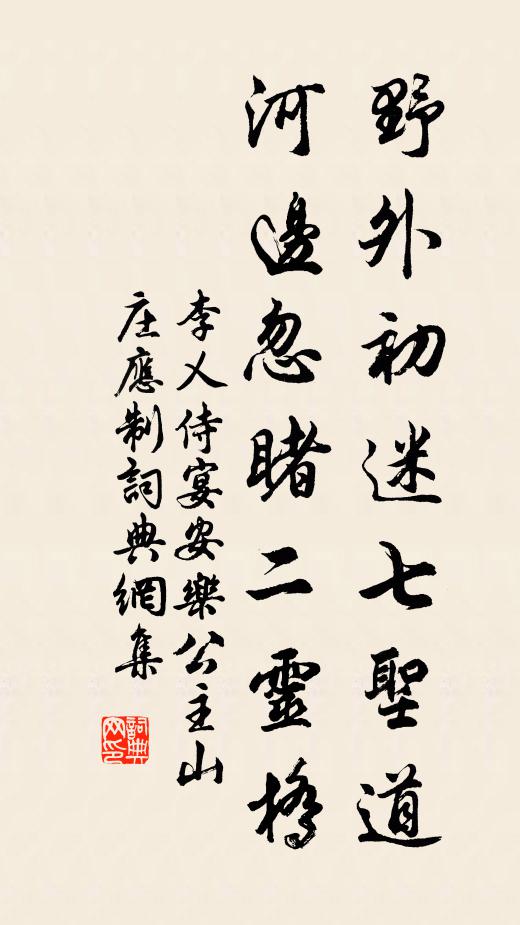 野外初迷七聖道
河邊忽睹二靈橋
李乂侍宴安樂公主山
庄應制詞典網集
詞典
网印